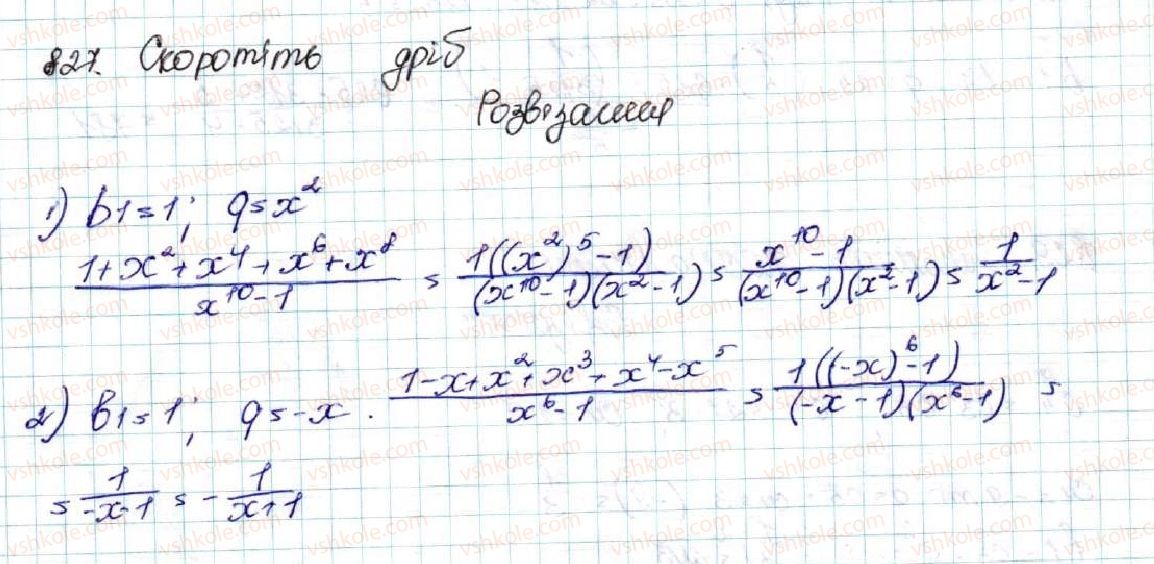 827. Скоротіть дріб
Розв'язання
1) b1 = 1; q = x^2
(1+x^2+x^4+x^6+x^8)/(x^10-1) = 1((x^2)^5-1)/((x^10-1)(x^2-1)) = (x^10-1)/((x^10-1)(x^2-1)) = 1/(x^2-1)
2) b1 = 1; q = -x. (1-x+x^2+x^3+x^4-x^5)/(x^6-1) = 1((-x)^6-1)/((-x-1)(x^6-1)) =
= 1/(-x-1) = -1/(x+1)